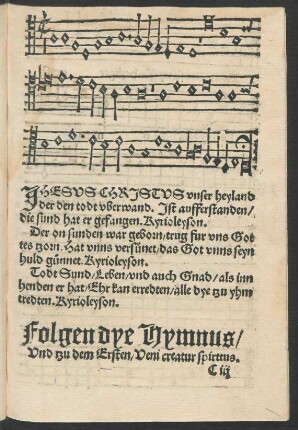 JHESVS CHRISTVS vnser heyland
der den todt vberwand. Ist aufferstanden/
die sund hat er gefangen. Kyrioleyson.
Der on sunden war geborn/trug für vns Got
tes tzorn. Hat vnns versünet/das Got vnns seyn
huld günnet. Kyrioleyson.
Todt Sund/Leben/vnd auch Gnad/als inn
henden er hat/Ehr kan erredten/alle dye tzu yhm
tredten. Kyrioleyson.
Folgen dye Hymnus/
Vnd tzu dem Ersten/Veni creatur spiritus.
C iij